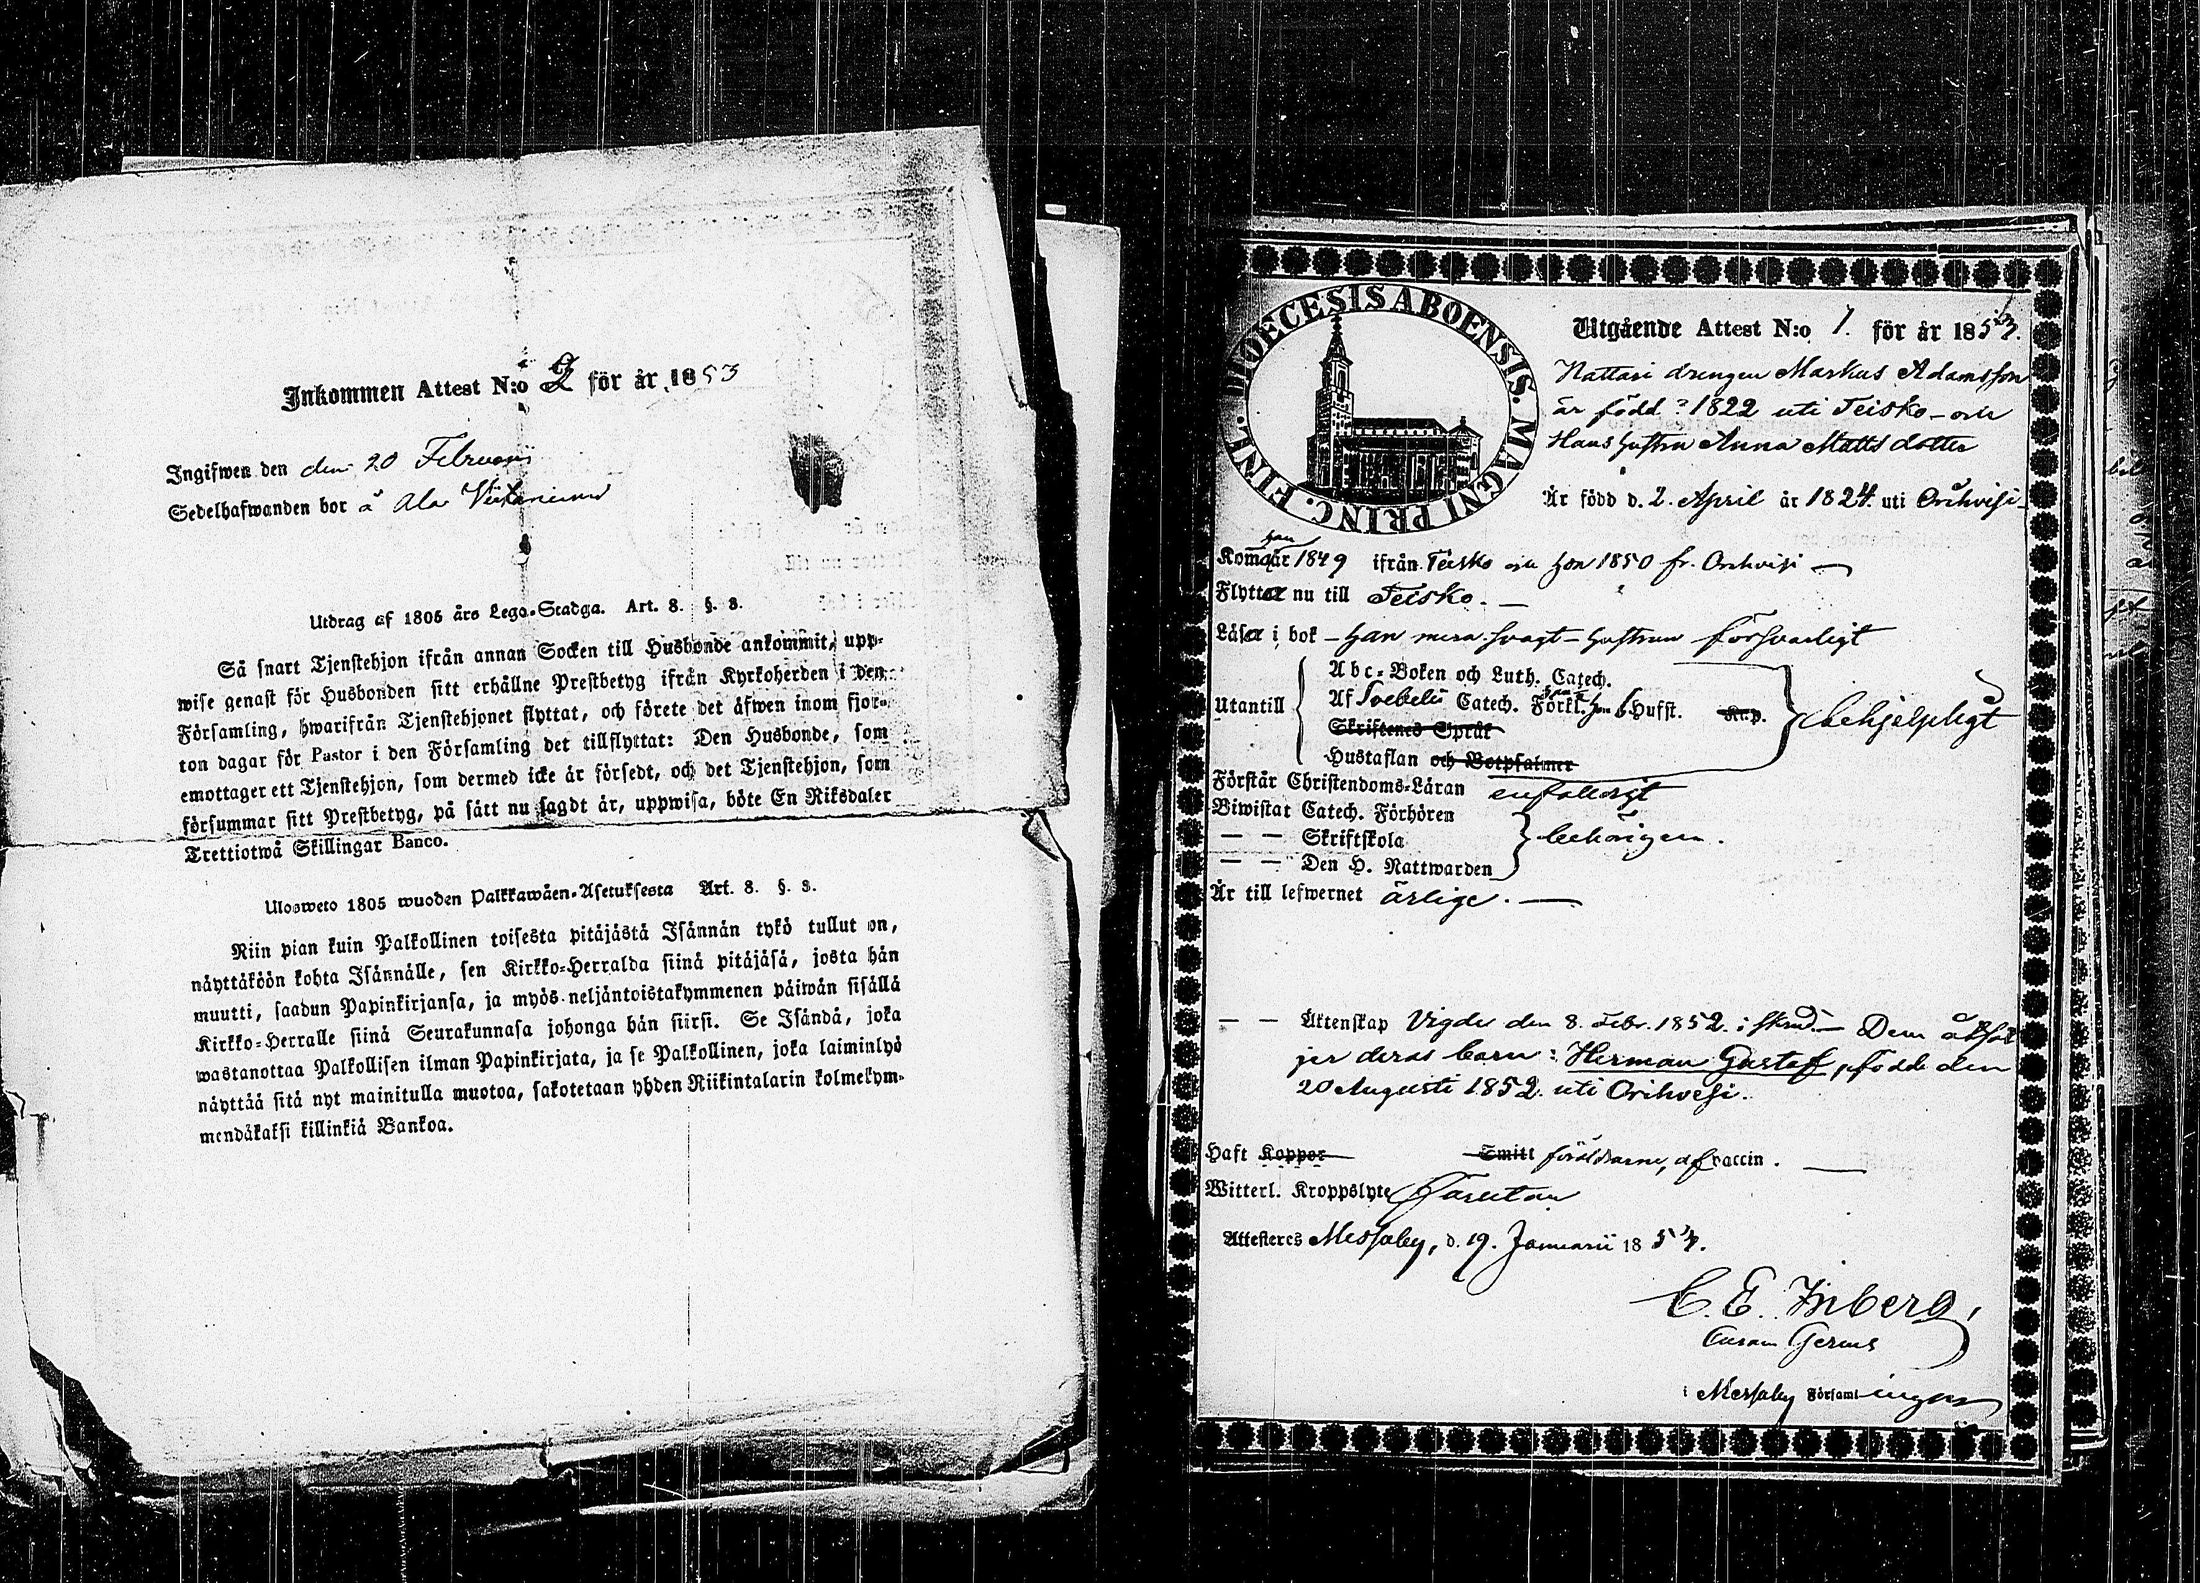 Inkommen Attest N:o 2 för år 1853
Ingifwen den den 20 Februarii
Sedelhafwanden bor å Ala
Utdrag af 1805 års Lego-Stadga. Art. 8. §. 3.
Så snart Tjenstehjon ifrån annan Socken till Husbonde ankommit, upp-
wise genast för Husbonden sitt erhållne Prestbetyg ifrån Kyrkoherden i den
Församling, hwarifrån Tjenstehjonet flyttat, och förete det äfwen inom fjor-
ton dagar för Pastor i den Församling det tillflyttat: Den Husbonde, som
emottager ett Tjenstehjon, som dermed icke är försedt, och det Tjenstehjon, som
försummar sitt Prestbetyg, på sätt nu sagdt är, uppwisa, böte En Riksdaler
Trettiotwå Skillingar Banco.
Ulosweto 1805 wuoden Palkkawäen-Asetuksesta Art. 8. §. 3.
Niin pian kuin Palkollinen toisesta pitäjästä Isännän tykö tullut on,
näyttäköön kohta Isännälle, sen Kirkko-Herralda siinä pitäjäsä, josta hän
muutti, saadun Papinkirjansa, ja myös neljäntoistakymmenen päiwän sisällä
Kirkko-Herralle siinä Seurakunnasa johonga hän siirsi. Se Isändä, joka
wastanottaa Palkollisen ilman Papinkirjata, ja se Palkollinen, joka laiminlyö
näyttää sitä nyt mainitulla muotoa, sakotetaan yhden Riikintalarin kolmekym-
mendäkaksi killinkiä Bankoa.
DIOECESIS ABOENSIS. MAGNI PRINC. FINL.
Utgående Attest N:o 7. för år 1853.
Nattari drengen Markus Adamsson
är född ? 1822 uti Teisko - och
Hans hustru Anna Mattsdotter
Är född d. 2. April år 1824. uti Orihvesi
han
Kom år 1849 ifrån Teisko och hon 1850 fr. Orihvesi
Flytta nu till Teisko.
Läsa i bok - han mera svagt - hustrun försvarligt
Abc-Boken och Luth. Catech.
Utantill Af Svebelii Catech. Förkl. hon 6 Hufst. Kap. behjelpligt
Skriftenes Språk
Hustaflan och Botpsalmer
Förstår Christendoms-Läran enfaldigt
Biwistat Catech. Förhören
— — Skriftskola behörigen.
— — Den H. Nattwarden
Är till lefwernet ärlige.
— — Äktenskap Vigde den 8. Febr. 1852. Dem åtföl
jer deras barn: Herman Gustaf, född den
20 Augusti 1852. uti Orihvesi.
Haft Koppor Smitt föräldrarne, af vaccin.
Witterl. Kroppslyte Förutan
Attesteres Messuby, d. 19. Januarii 1853.
C. E. Inberg,
Curam Gerens
i Messuby Församlingen